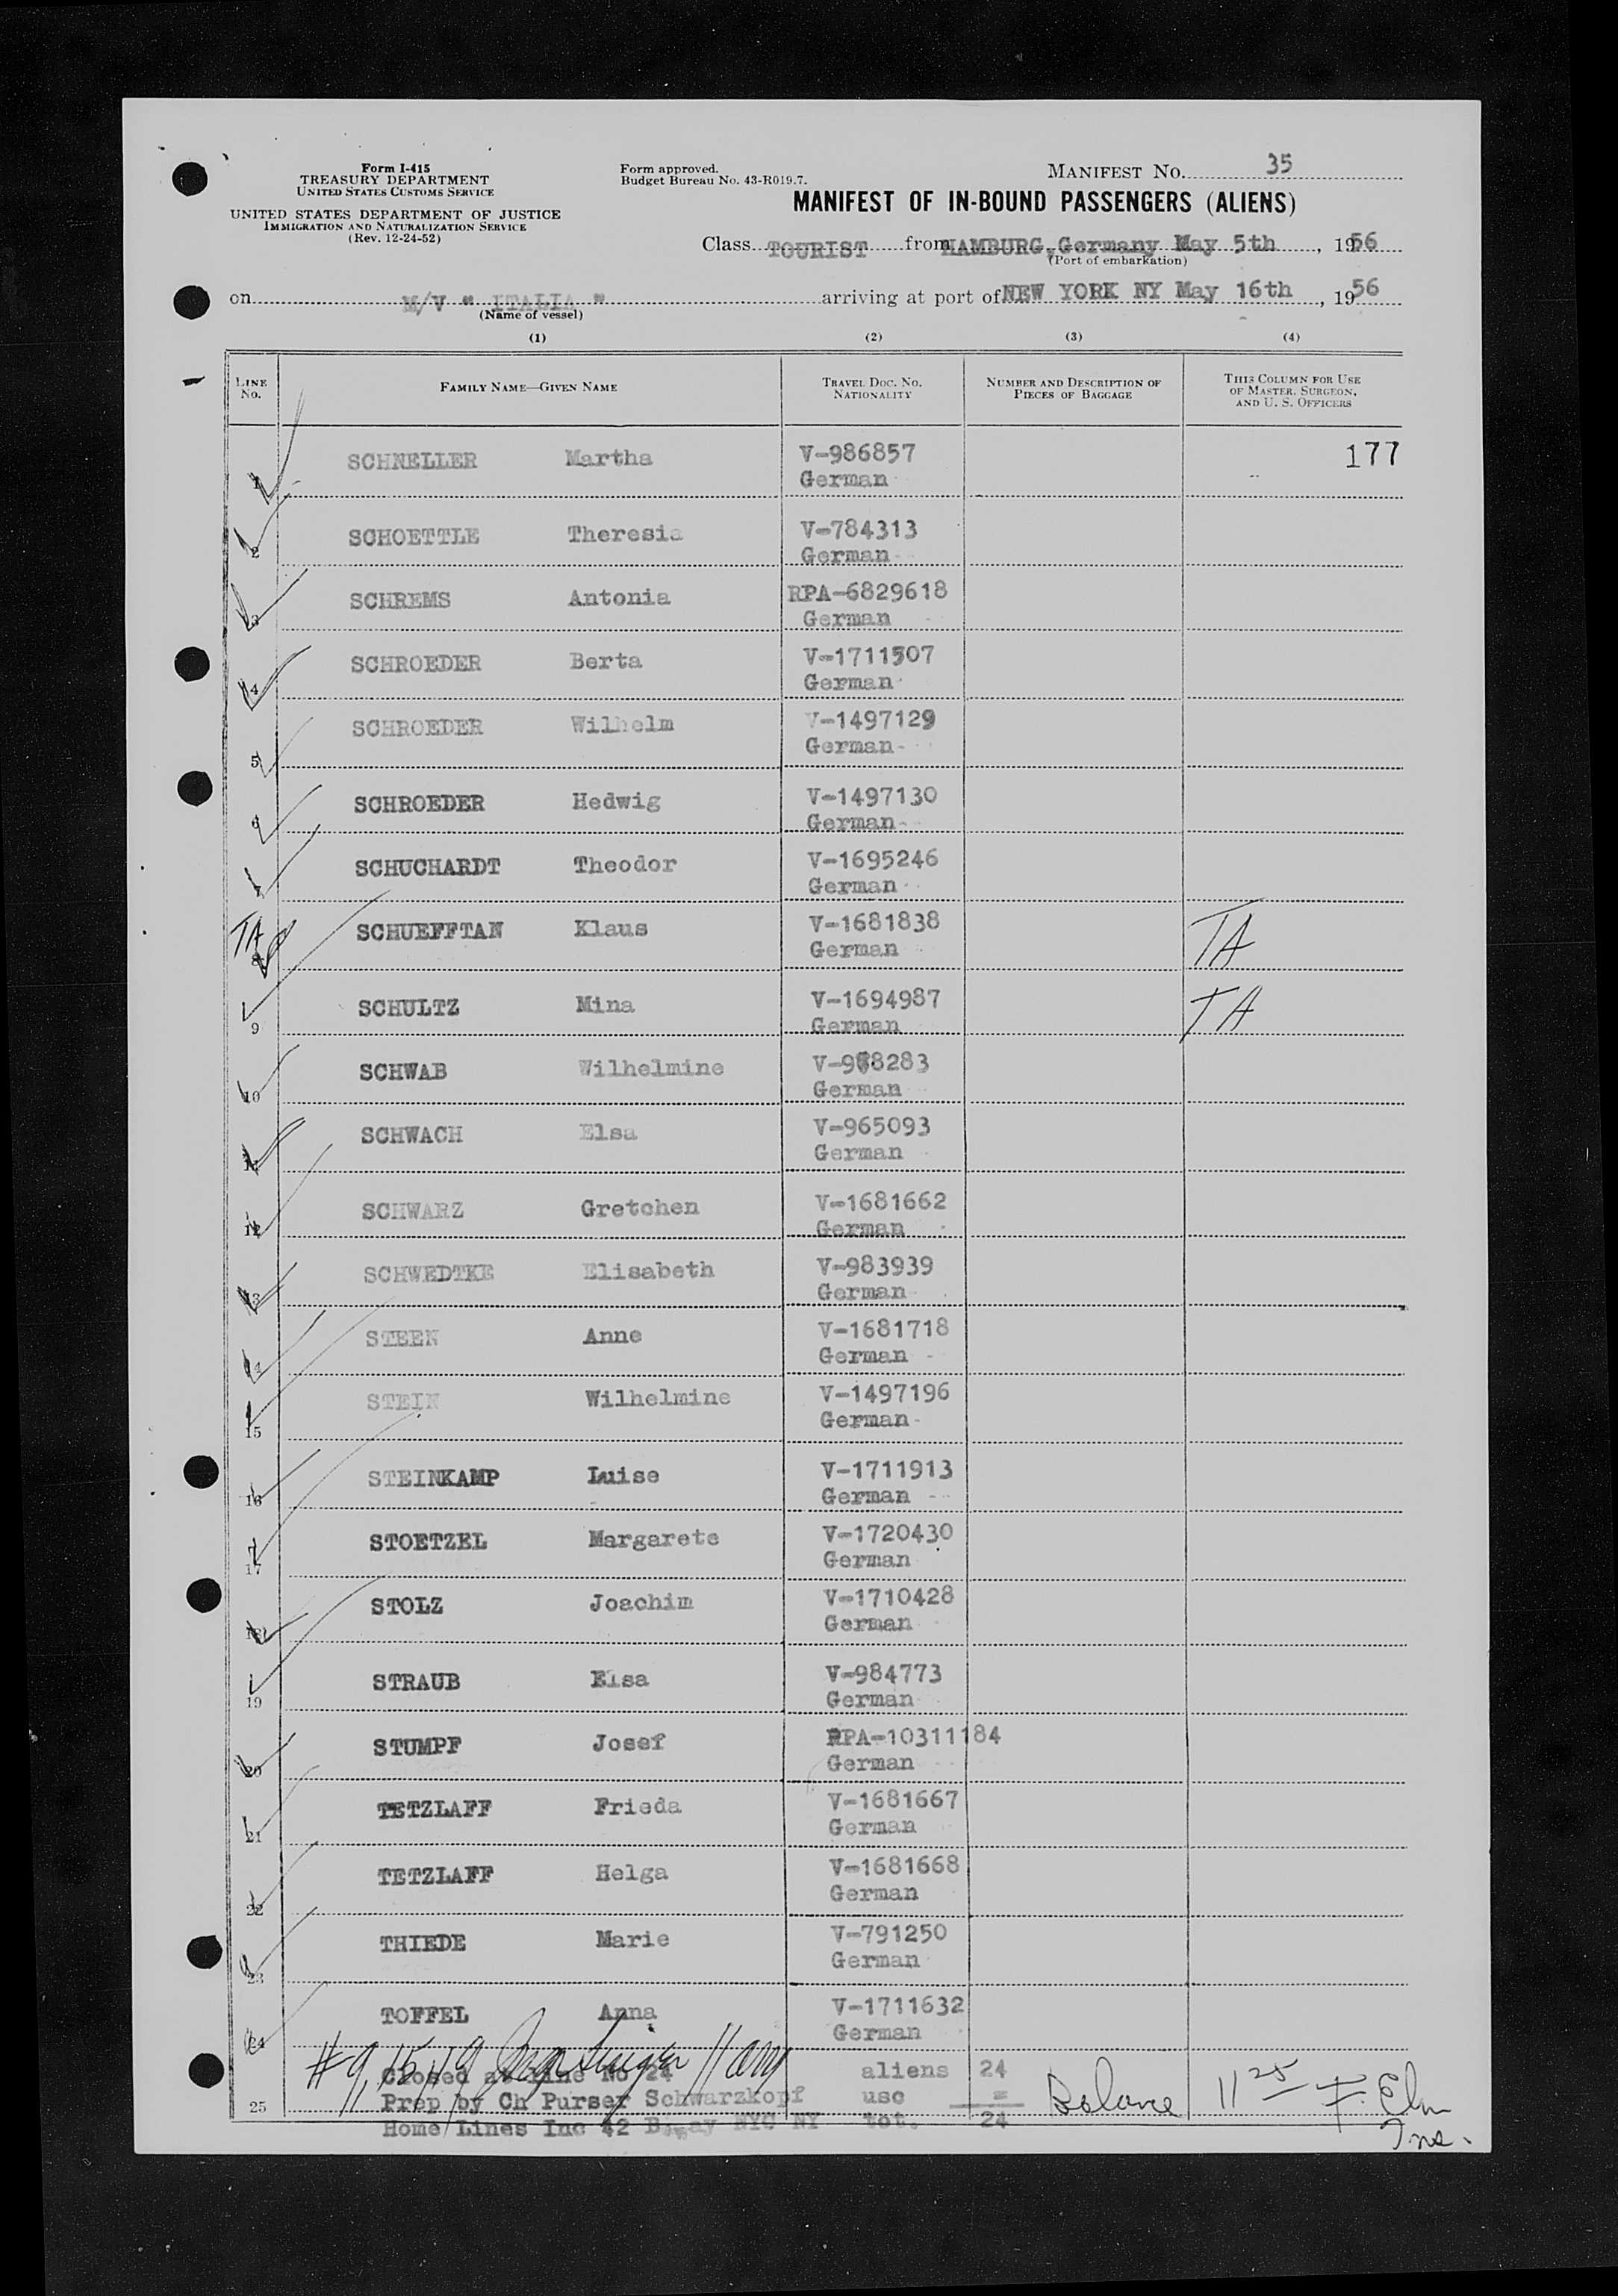 Form I-415
TREASURY DEPARTMENT
UNITED STATES CUSTOMS SERVICE
UNITED STATES DEPARTMENT OF JUSTICE
IMMIGRATION AND NATURALIZATION SERVICE
(Rev. 12-24-52)
Form approved.
Budget Bureau No. 43-R019.7.
MANIFEST NO. 35
MANIFEST OF IN-BOUND PASSENGERS (ALIENS)
Class TOURIST from HAMBURG, Germany May 5th, 1956
(Port of embarkation)
on M/V " ITALIA " arriving at port of NEW YORK NY May 16th, 1956
(Name of vessel)
(1) (2) (3) (4)
LINE No. FAMILY NAME—GIVEN NAME TRAVEL DOC. No. NATIONALITY NUMBER AND DESCRIPTION OF PIECES OF BAGGAGE THIS COLUMN FOR USE OF MASTER, SURGEON, AND U. S. OFFICERS
1 SCHNELLER Martha V-986857 177
German
2 SCHOETTLE Theresia V-784313
German
3 SCHREMS Antonia RPA-6829618
German
4 SCHROEDER Berta V-1711507
German
5 SCHROEDER Wilhelm V-1497129
German
6 SCHROEDER Hedwig V-1497130
German
7 SCHUCHARDT Theodor V-1695246
German
TA 8 SCHUEFFTAN Klaus V-1681838 TA
German
9 SCHULTZ Mina V-1694987 TA
German
10 SCHWAB Wilhelmine
German
11 SCHWACH Elsa V-965093
German
12 SCHWARZ Gretchen V-1681662
German
13 SCHWEDTKE Elisabeth V-983939
German
14 STEEN Anne V-1681718
German
15 STEIN Wilhelmine V-1497196
German
16 STEINKAMP Luise V-1711913
German
17 STOETZEL Margarete V-1720430
German
18 STOLZ Joachim V-1710428
German
19 STRAUB Elsa V-984773
German
20 STUMPF Josef RPA-10311184
German
21 TETZLAFF Frieda V-1681667
German
22 TETZLAFF Helga V-1681668
German
23 THIEDE Marie V-791250
German
24 TOFFEL Anna V-1711632
German
#9, 15, 19
Closed at line No 24 aliens 24
25 Prep by Ch Purser Schwarzkopf usc = Balance 11 25 F. Elm
Home Lines Inc 42 NYC NY tot. 24 Ins.